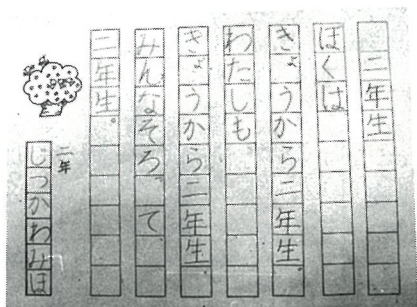 二年生
ぼくは
きょうから二年生。
わたしも、
きょうから二年生。
みんなそろって
二年生。
二年
じつかわみほ